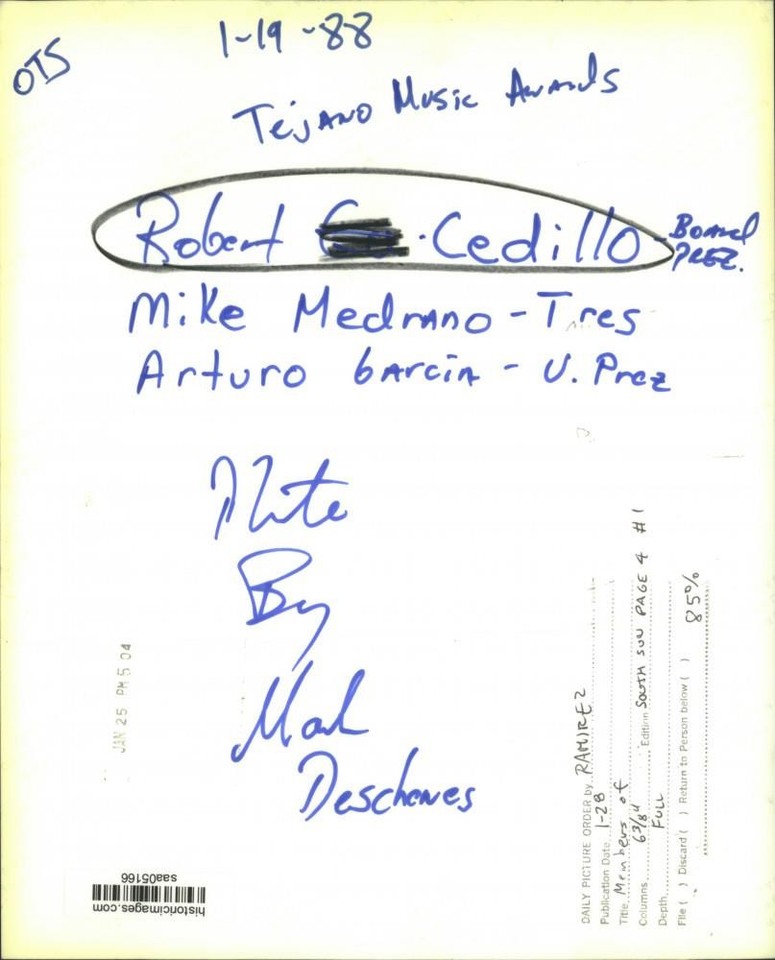 OTS
1-19-88
Tejano Music Awards
Robert Cedillo - Board Prez.
Mike Medrano - Tres
Arturo Garcia - V. Prez
Photo
By
Mark
Deschenes
JAN 25 PM 5 04
DAILY PICTURE ORDER by RAMIREZ
Publication Date 1-28
Title Members of
Columns 6 3/8" Edition SOUTH SUN PAGE 4 #1
Depth FULL
File ( ) Discard ( ) Return to Person below ( )
85%
historicimages.com
saa05166